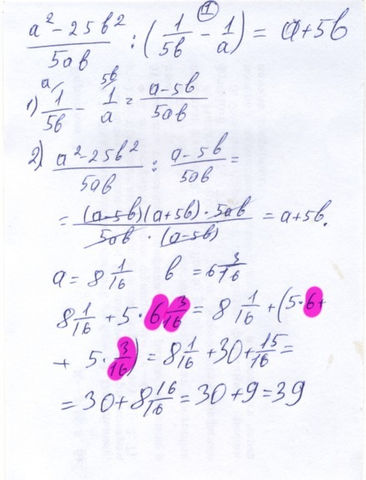 ①
(a² - 25b²)/(5ab) : (1/(5b) - 1/a) = a+5b
1) 1/(5b) ᵃ/ - 1/a ⁵ᵇ/ = (a-5b)/(5ab)
2) (a² - 25b²)/(5ab) : (a-5b)/(5ab) =
= ((a-5b)(a+5b)·5ab)/(5ab·(a-5b)) = a+5b.
a = 8 1/16 b = 6 3/16
8 1/16 + 5·6 3/16 = 8 1/16 + (5·6+
+ 5·3/16) = 8 1/16 + 30 + 15/16 =
= 30 + 8 16/16 = 30 + 9 = 39